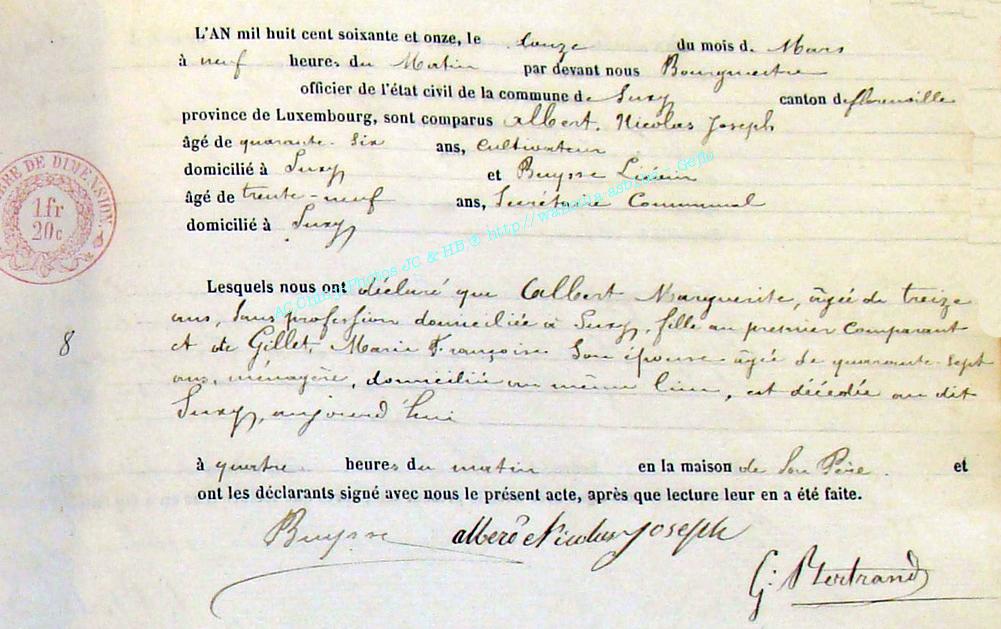 L'AN mil huit cent soixante et onze, le onze du mois d. Mars
à neuf heures du Matin par devant nous Bourgmestre
officier de l'état civil de la commune de Suxy canton de florenville
province de Luxembourg, sont comparus Albert, Nicolas Joseph
âgé de quarante-six ans, Cultivateur
domicilié à Suxy et Buysse
âgé de trente-neuf ans, Secrétaire Communal
domicilié à Suxy
TIMBRE DE DIMENSION.
1.fr
20c
Lesquels nous ont déclaré que Albert Marguerite, âgée de treize
ans, Sans profession domiciliée à Suxy, fille au premier Comparant
et de Gillet, Marie Françoise Son épouse âgée de quarante-sept
ans, ménagère, domiciliée au même lieu, est décédée au dit
Suxy, aujourd'hui
8
à quatre heures du matin en la maison de Son Père et
ont les déclarants signé avec nous le présent acte, après que lecture leur en a été faite.
Buysse albert Nicolas Joseph
G. Bertrand
Photos JC & HB,® http//